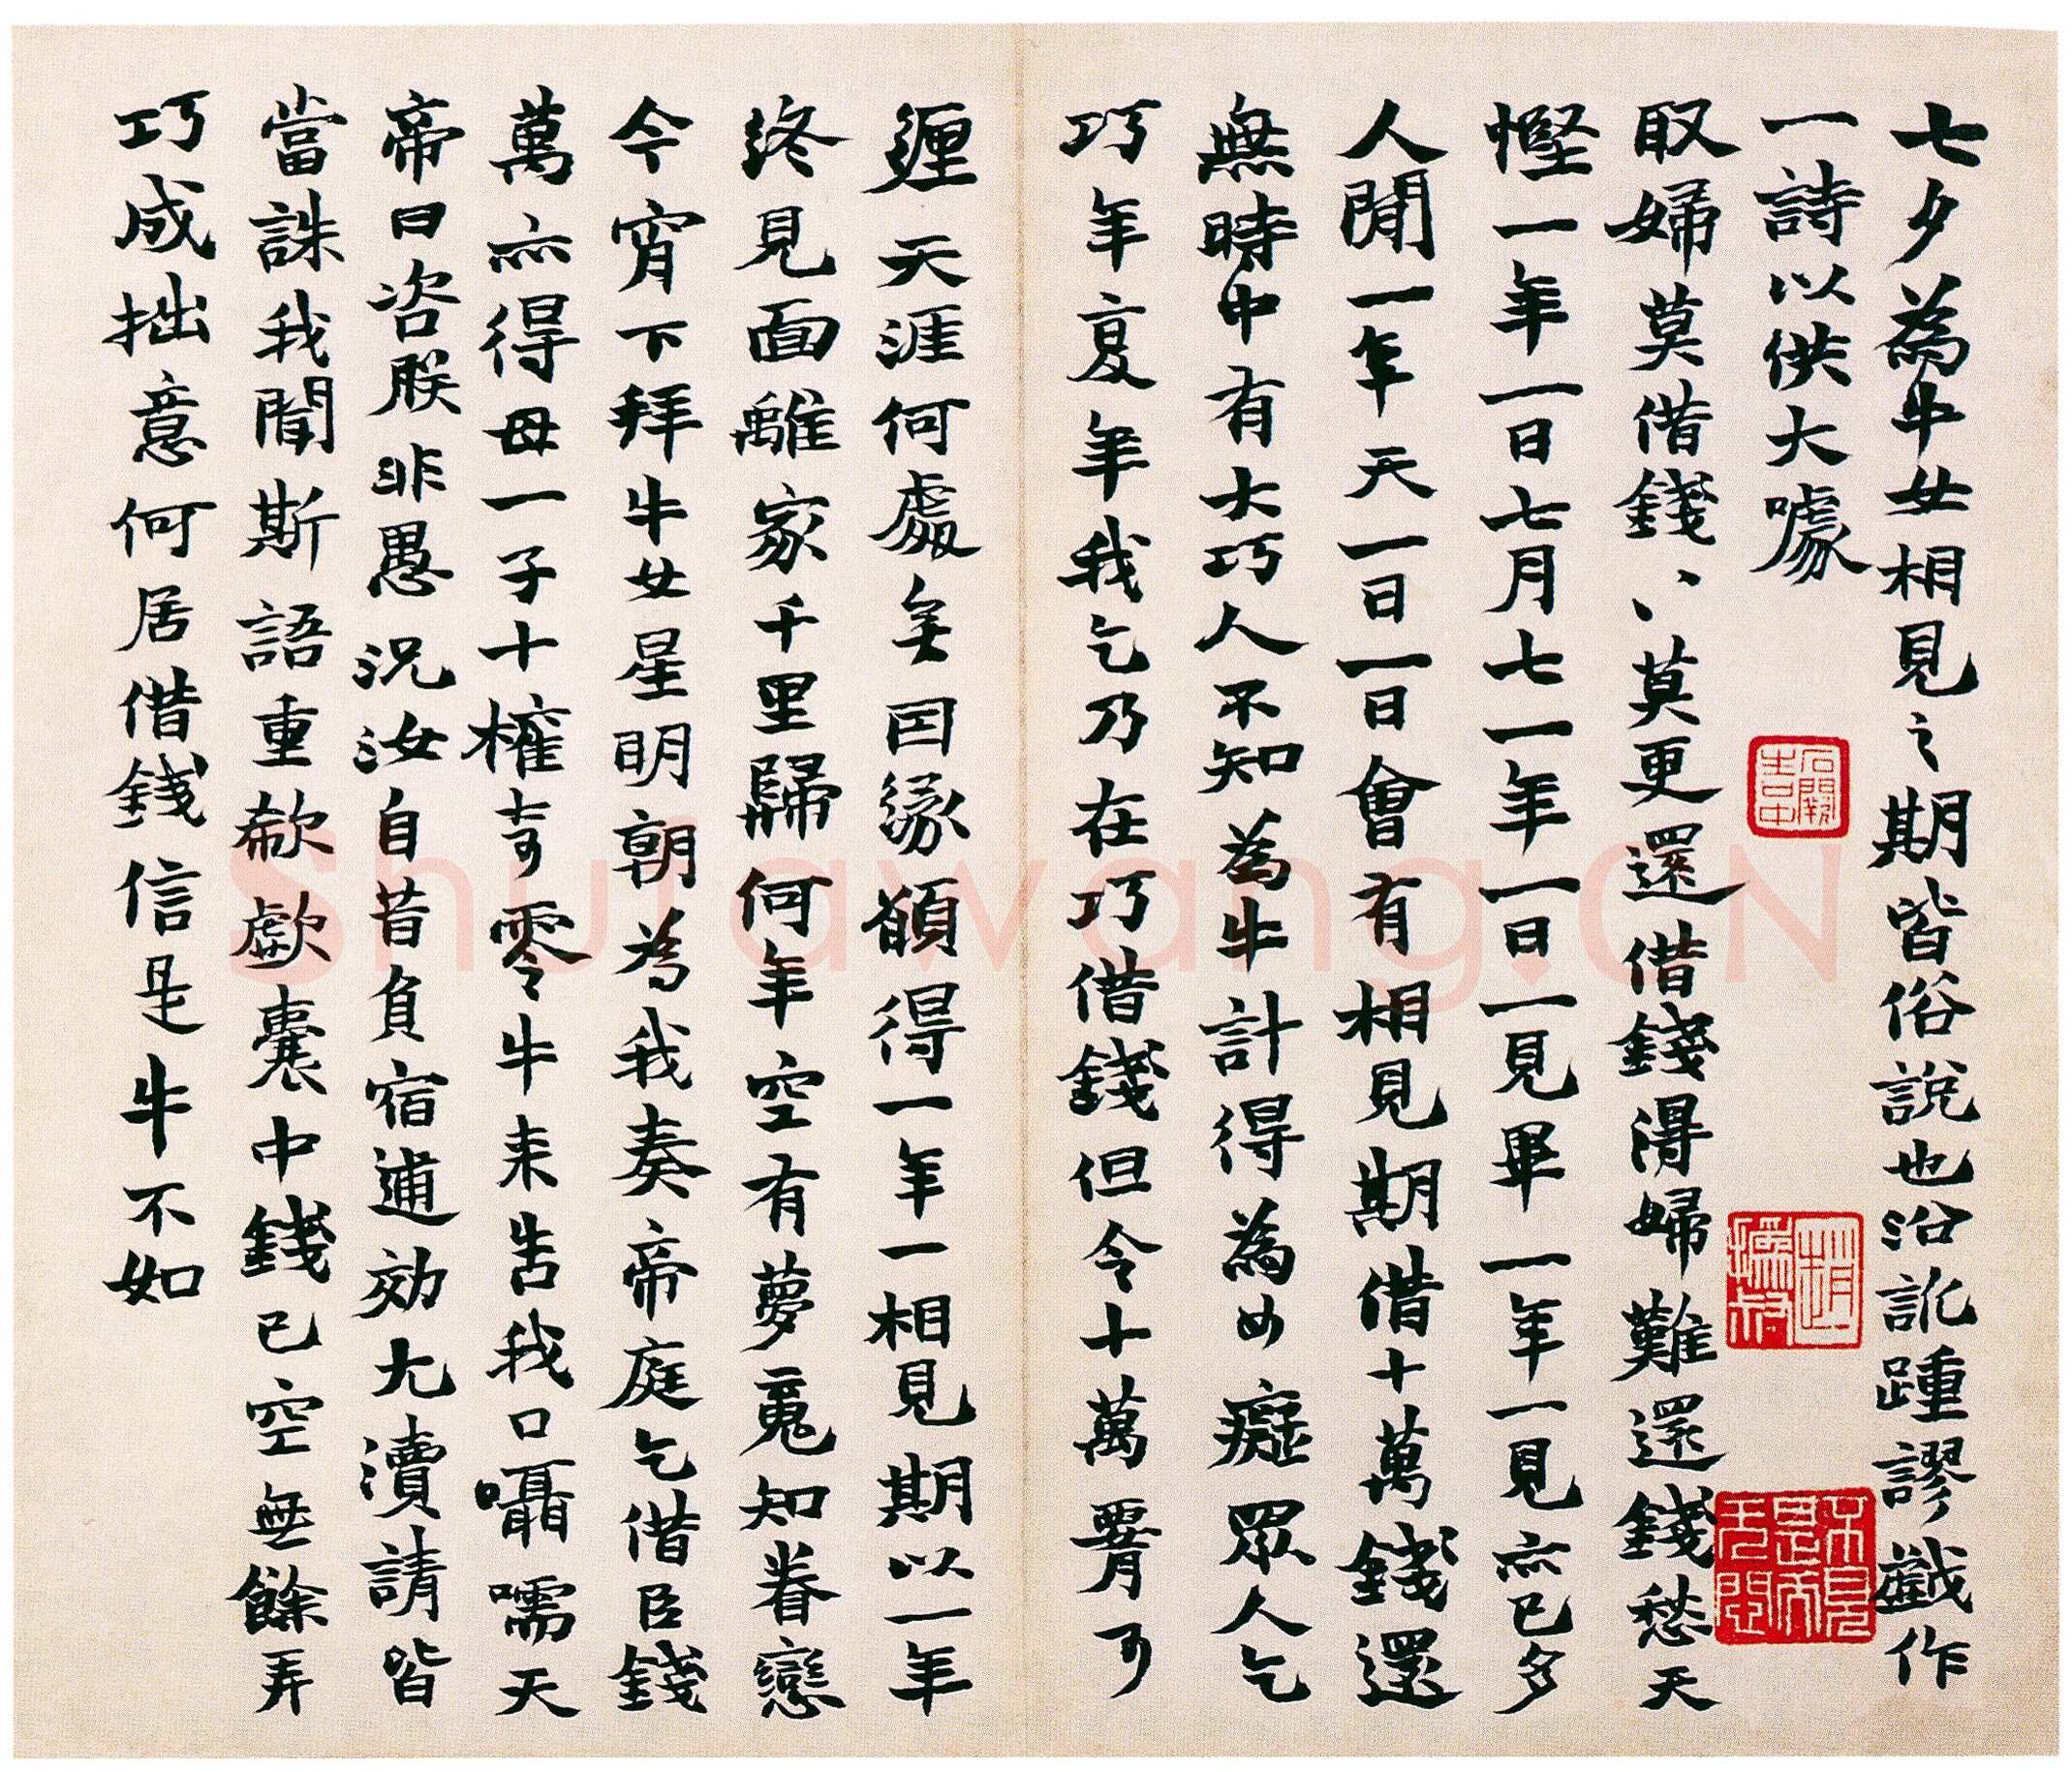 七夕為牛女相見之期皆俗說也沿訛踵謬戲作
一詩以供大噱
取婦莫借錢、、莫更還借錢得婦難還錢愁天
慳一年一日七月七一年一日一見畢一年一見亦已多
人間一年天一日一日會有相見期借十萬錢還
無時中有大巧人不知為牛計得為女癡眾人乞
巧年夏年我乞乃在巧借錢但令十萬霄可
纏天涯何處無因緣願得一年一相見期以一年
終見面離家千里歸何年空有夢魂知眷戀
今宵下拜牛女星明朝為我奏帝庭乞借臣錢
萬亦得母一子十榷奇零牛來告我口囁嚅天
帝曰咨朕非愚況汝自昔負宿逋効尤瀆請皆
當誅我聞斯語重欷歔囊中錢已空無餘弄
巧成拙意何居借錢信是牛不如
趙撝叔
Shufawang.CN